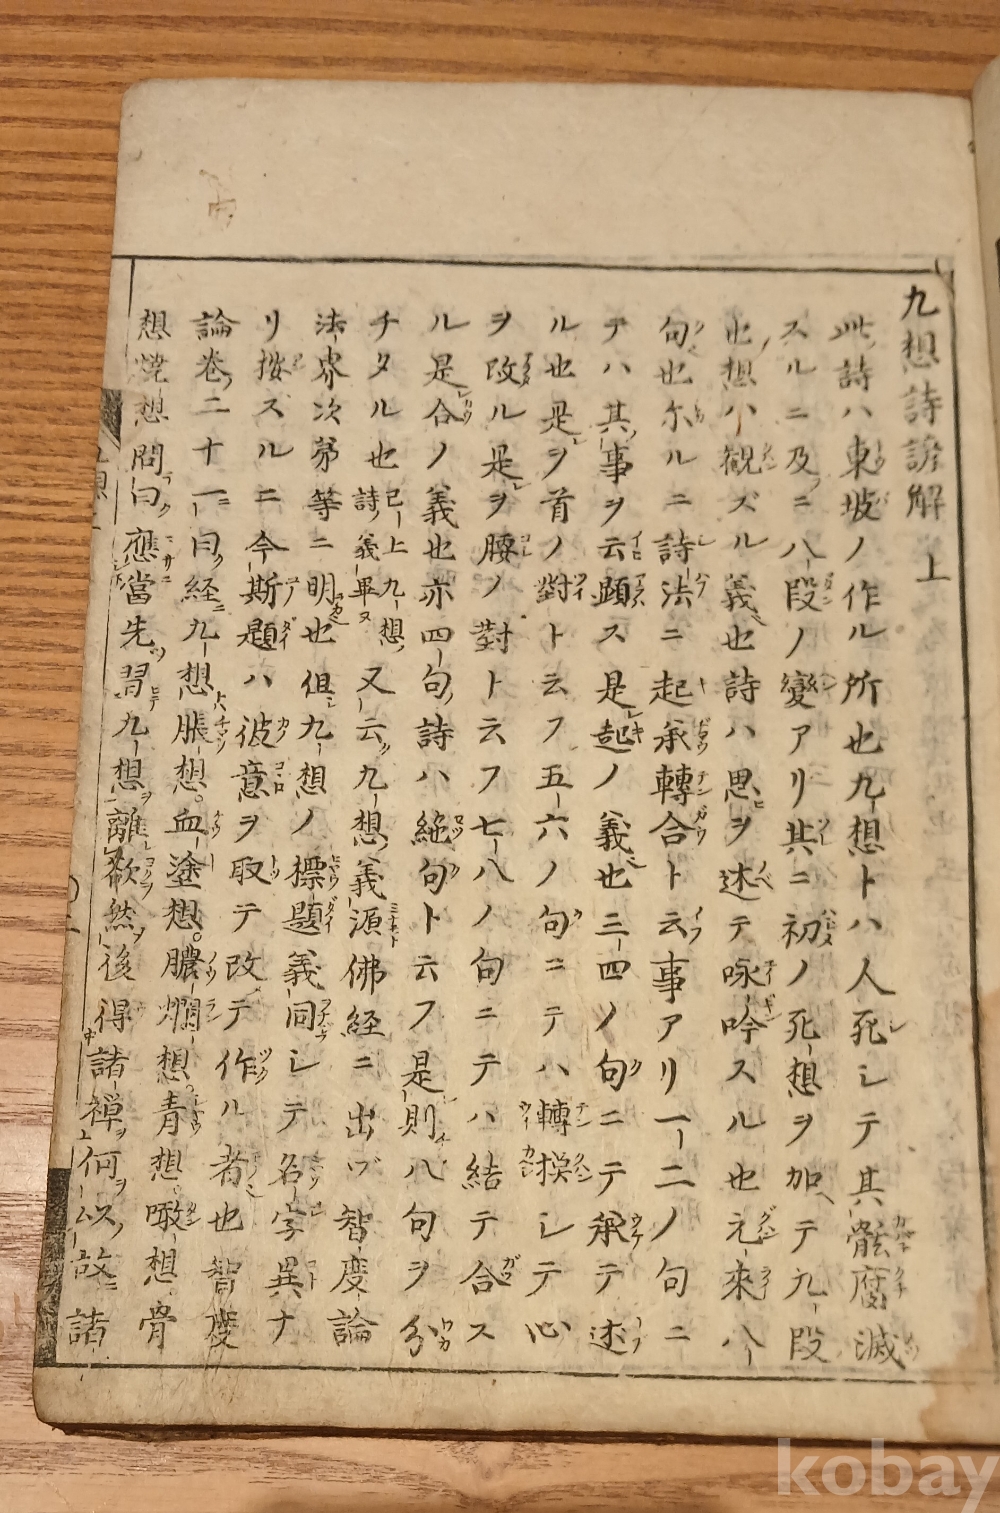 九想詩諺解上
此詩ハ東坡ノ作ル所也九想トハ人死シテ其骸腐滅
スルニ及ニ八段ノ變アリ其ニ初ノ死想ヲ加テ九段
也想ハ観ズル義也詩ハ思ヲ述テ咏吟スル也元來八
句也尓ルニ詩法ニ起承轉合ト云事アリ一二ノ句ニ
テハ其事ヲ云顕ス是起ノ義也三四ノ句ニテ承テ述
ル也是ヲ首ノ對ト云フ五六ノ句ニテハ轉捩シテ心
ヲ改ル是ヲ腰ノ對ト云フ七八ノ句ニテハ結テ合ス
ル是合ノ義也亦四句詩ハ絶句ト云フ是則八句ヲ分
チタル也已上九想詩義畢又云九想義源佛経ニ出ヅ智度論
法界次第等ニ明也但九想ノ標題義同シテ名字異ナ
リ按スルニ今斯題ハ彼意ヲ取テ改テ作ル者也智度
論巻二十一曰経九想脹想。血塗想。膿爛想青想。噉想骨
想焼想問曰應當先習九想離欲然後得諸禅何以故諸
kobay